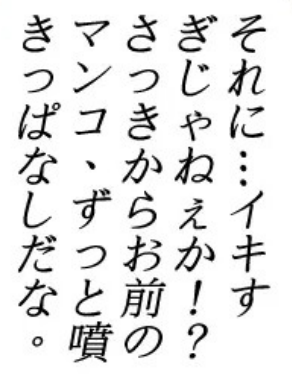 それに…イキす
ぎじゃねぇか！？
さっきからお前の
マンコ、ずっと噴
きっぱなしだな。